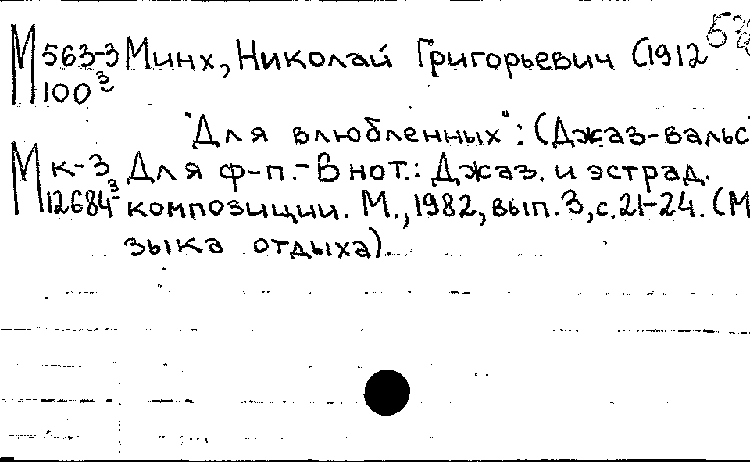 М 563-3 Минх, Николай Григорьевич (1912
100
"Для влюбленных": (Джаз-вальс
М к-3 Для ф-п.- В нот.: Джаз. и эстрад.
12684 композиции. М., 1982, вып. 3, с. 21-24. (М
зыка отдыха).